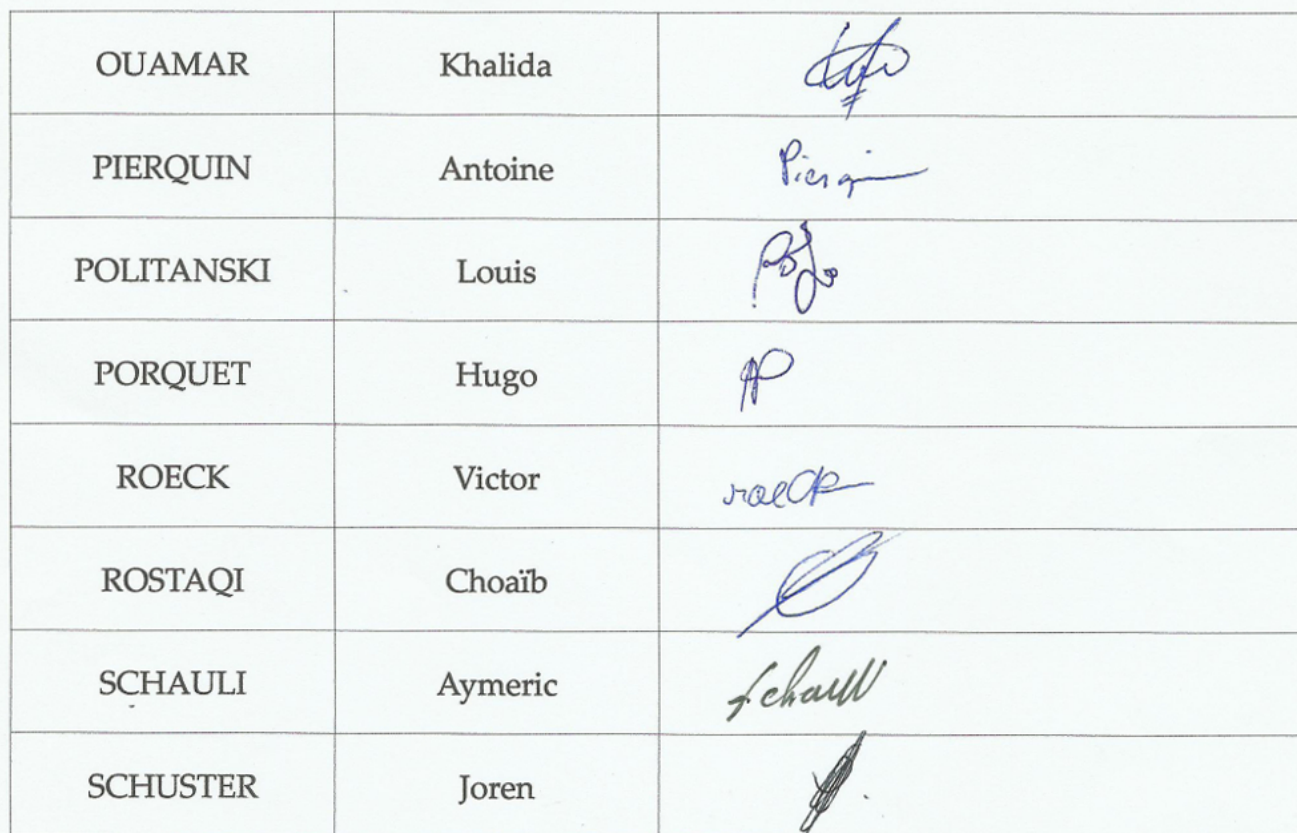 OUAMAR Khalida
PIERQUIN Antoine Pierqui
POLITANSKI Louis
PORQUET Hugo HP
ROECK Victor roeck
ROSTAQI Choaïb
SCHAULI Aymeric Schauli
SCHUSTER Joren